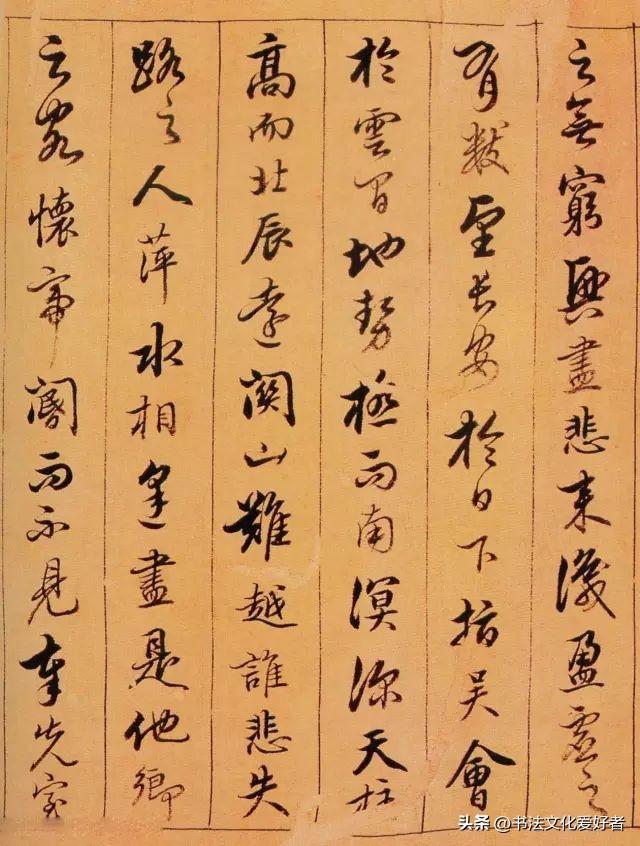 之無窮興盡悲来識盈虚之
有数望長安於日下指吴會
於雲間地勢極而南溟深天柱
高而北辰遠關山難越誰悲失
路之人萍水相逢盡是他鄉
之客懷帝閽而不見奉室
头条 @书法文化爱好者